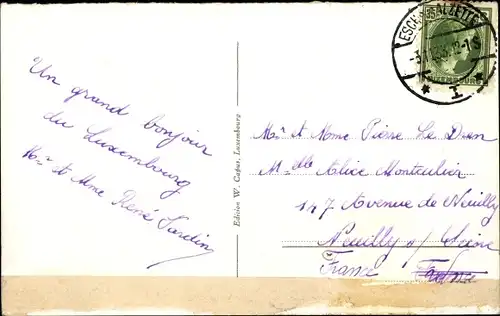 Un grand bonjour
du Luxembourg
Mr et Mme René Jardin
Edition W. Capus, Luxembourg
ESCH S. ALZETTE
35
LUXEMBOURG
Mr et Mme Pierre Le Duen
Mlle Alice
147 Avenue de Neuilly
Neuilly s/ Seine
France